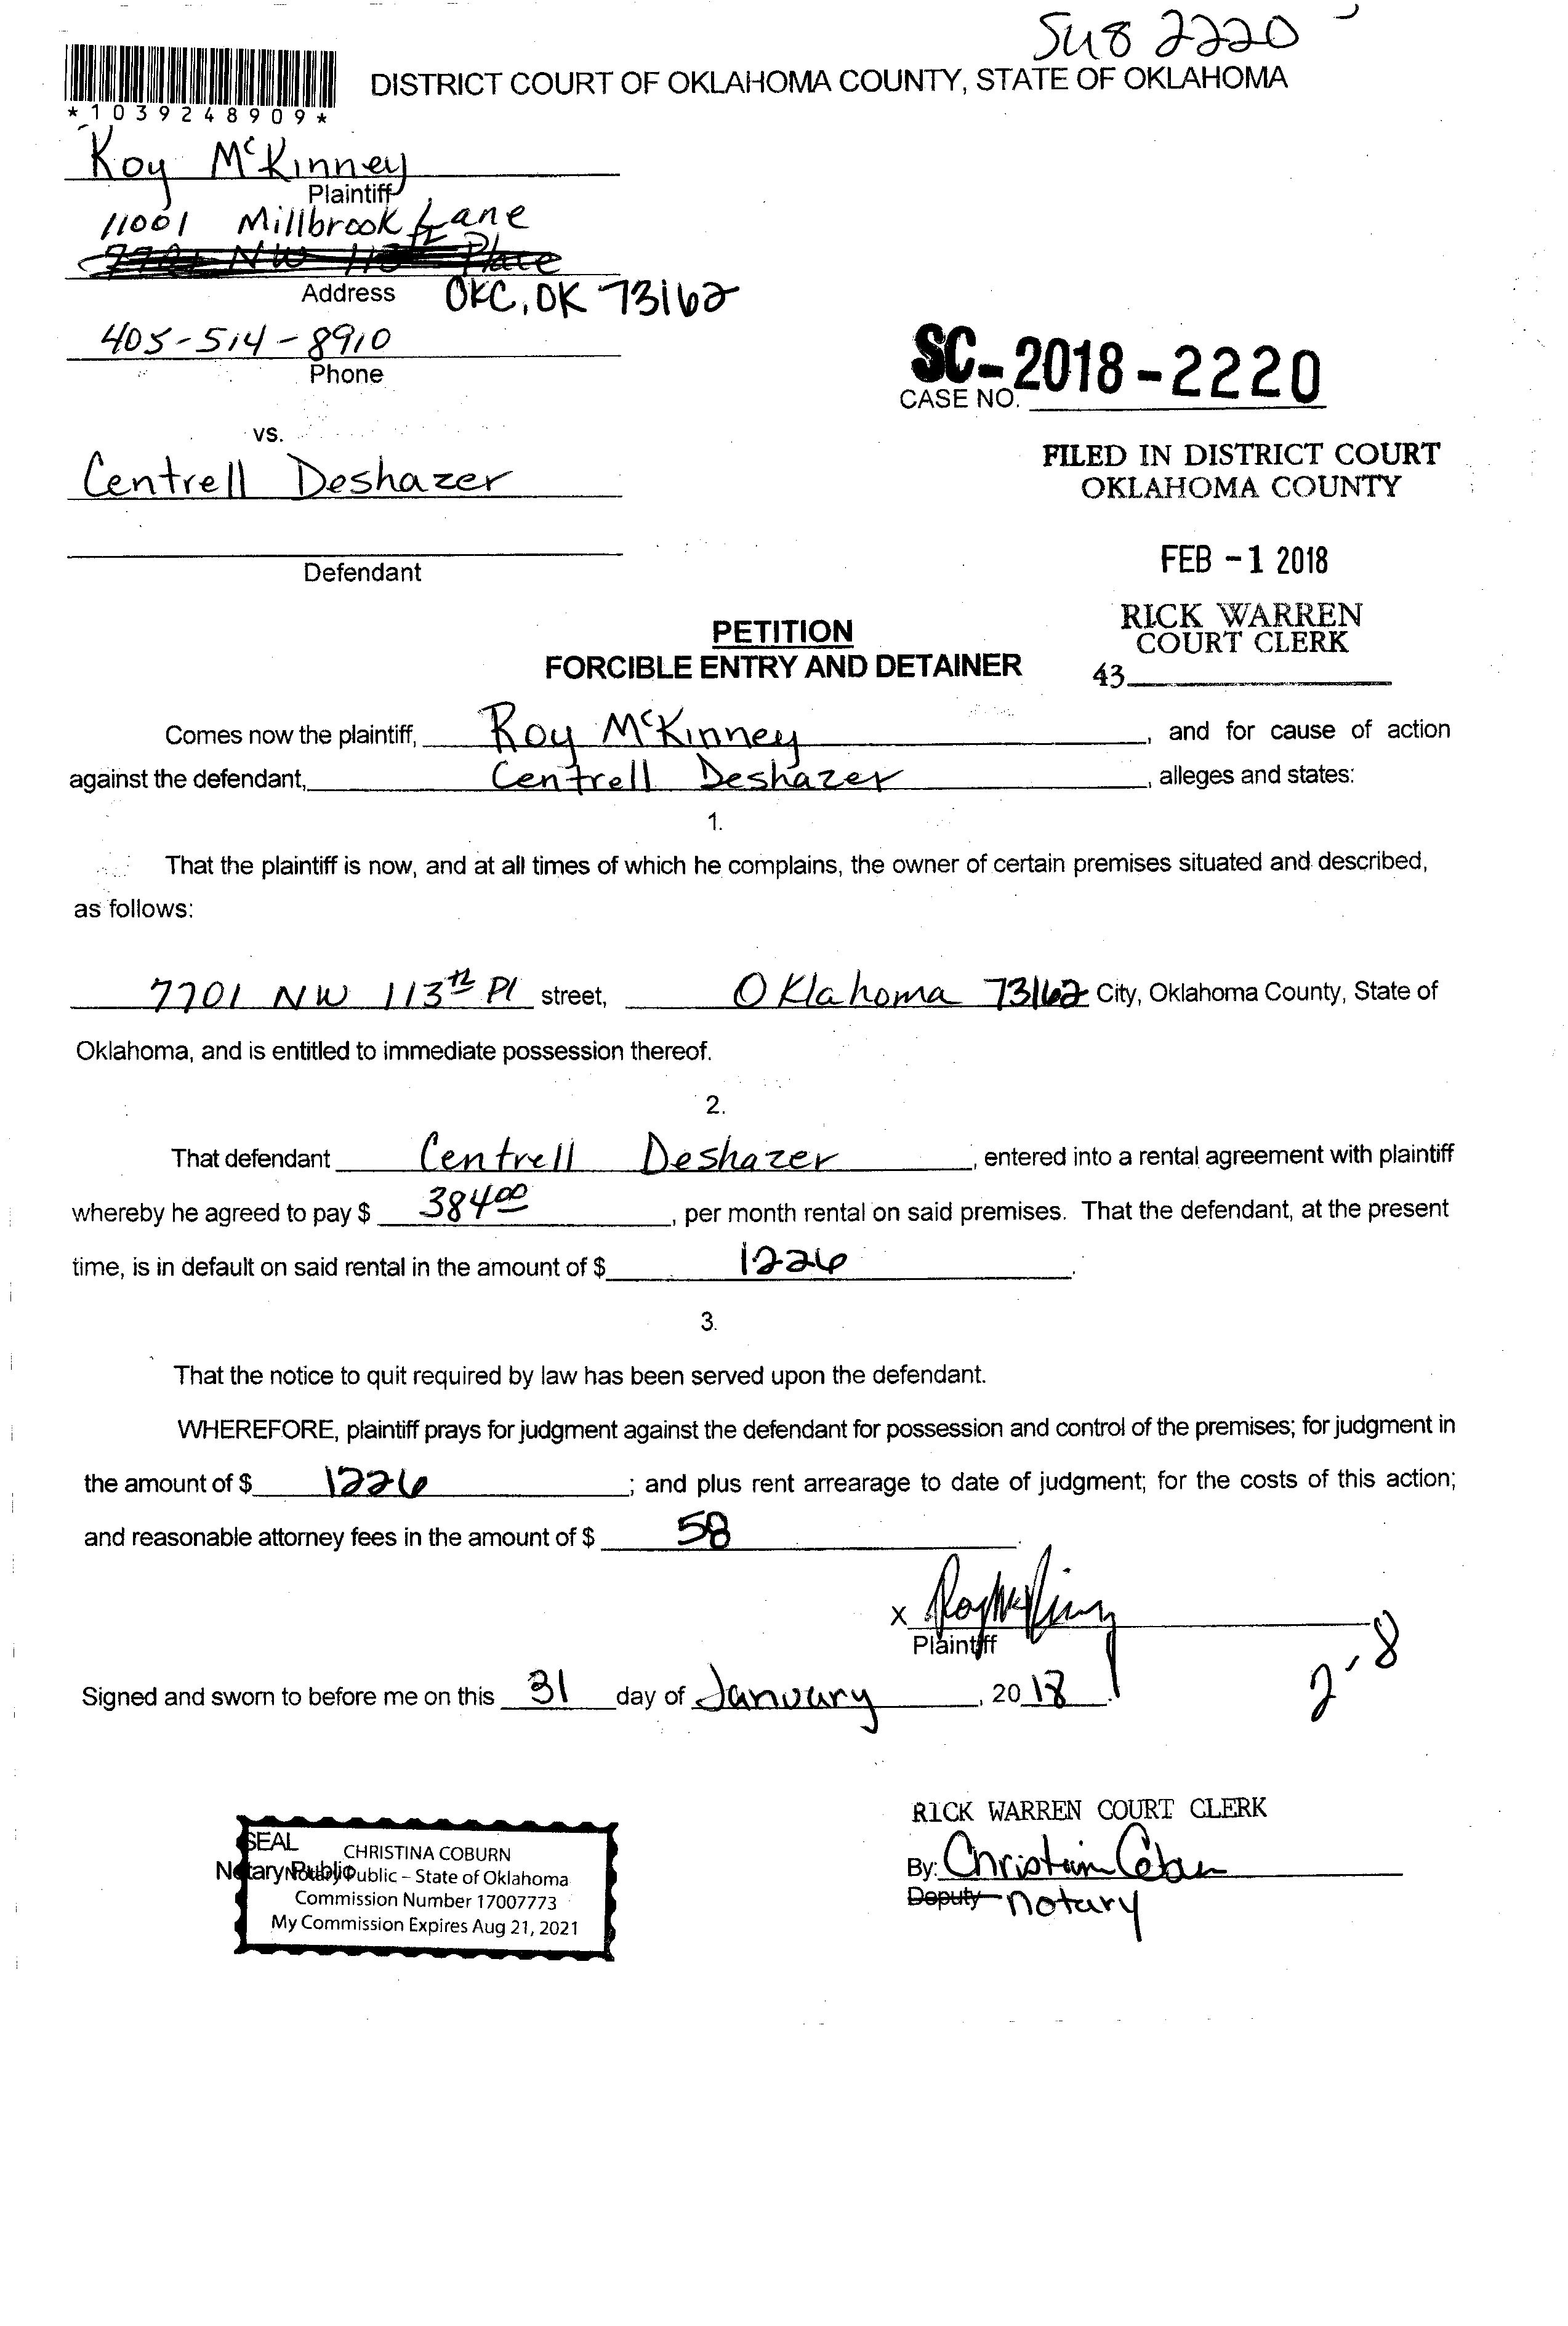 SC18 2220
DISTRICT COURT OF OKLAHOMA COUNTY, STATE OF OKLAHOMA
*1039248909*
Roy McKinney
Plaintiff
11001 Millbrook Lane
Address OKC, OK 73162
405-514-8910
Phone
SC-2018-2220
CASE NO.
vs.
Centrell Deshazer
FILED IN DISTRICT COURT
OKLAHOMA COUNTY
Defendant
FEB -1 2018
RICK WARREN
COURT CLERK
43
PETITION
FORCIBLE ENTRY AND DETAINER
Comes now the plaintiff, Roy McKinney, and for cause of action
against the defendant, Centrell Deshazer, alleges and states:
1.
That the plaintiff is now, and at all times of which he complains, the owner of certain premises situated and described,
as follows:
7701 NW 113th Pl street, Oklahoma 73162 City, Oklahoma County, State of
Oklahoma, and is entitled to immediate possession thereof.
2.
That defendant Centrell Deshazer, entered into a rental agreement with plaintiff
whereby he agreed to pay $ 384 00, per month rental on said premises. That the defendant, at the present
time, is in default on said rental in the amount of $ 1226.
3.
That the notice to quit required by law has been served upon the defendant.
WHEREFORE, plaintiff prays for judgment against the defendant for possession and control of the premises; for judgment in
the amount of $ 1226; and plus rent arrearage to date of judgment; for the costs of this action;
and reasonable attorney fees in the amount of $ 58.
X Roy McKinney
Plaintiff
2-8
Signed and sworn to before me on this 31 day of January, 2018.
RICK WARREN COURT CLERK
By: Christina Coburn
Deputy notary
SEAL
CHRISTINA COBURN
Notary Public
Notary Public – State of Oklahoma
Commission Number 17007773
My Commission Expires Aug 21, 2021